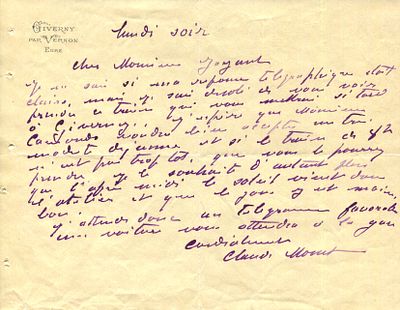 GIVERNY
PAR VERNON
EURE
lundi soir
Cher Monsieur Joyant
Je ne sais si ma réponse télégraphique était
claire, mais je suis désolé de vous voir
prendre ce train qui vous mettrait si tard
à Giverny. J'espère que Monsieur
Camondo voudra bien accepter un très
modeste déjeuner et si le train de 8h
n'est pas trop tôt, que vous le pouvez
prendre. Je le souhaite d'autant plus
que l'après midi le soleil vient dans
l'atelier et que le jour y est moins
bon.
J'attends donc un télégramme favorable
ma voiture vous attendra à la gare
Cordialement
Claude Monet